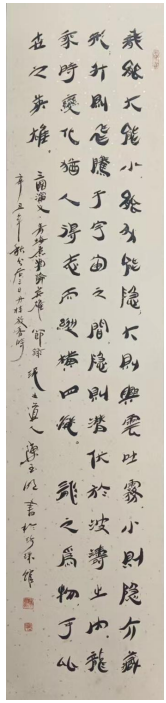 龍能大能小能升能隱大則興雲吐霧小則隱介藏
形升則飛騰于宇宙之間隱則潛伏於波濤之內龍
乘時變化猶人得志而縱橫四海龍之為物可比
世之英雄
三國演义青梅煮酒論英雄節錄
辛丑年秋